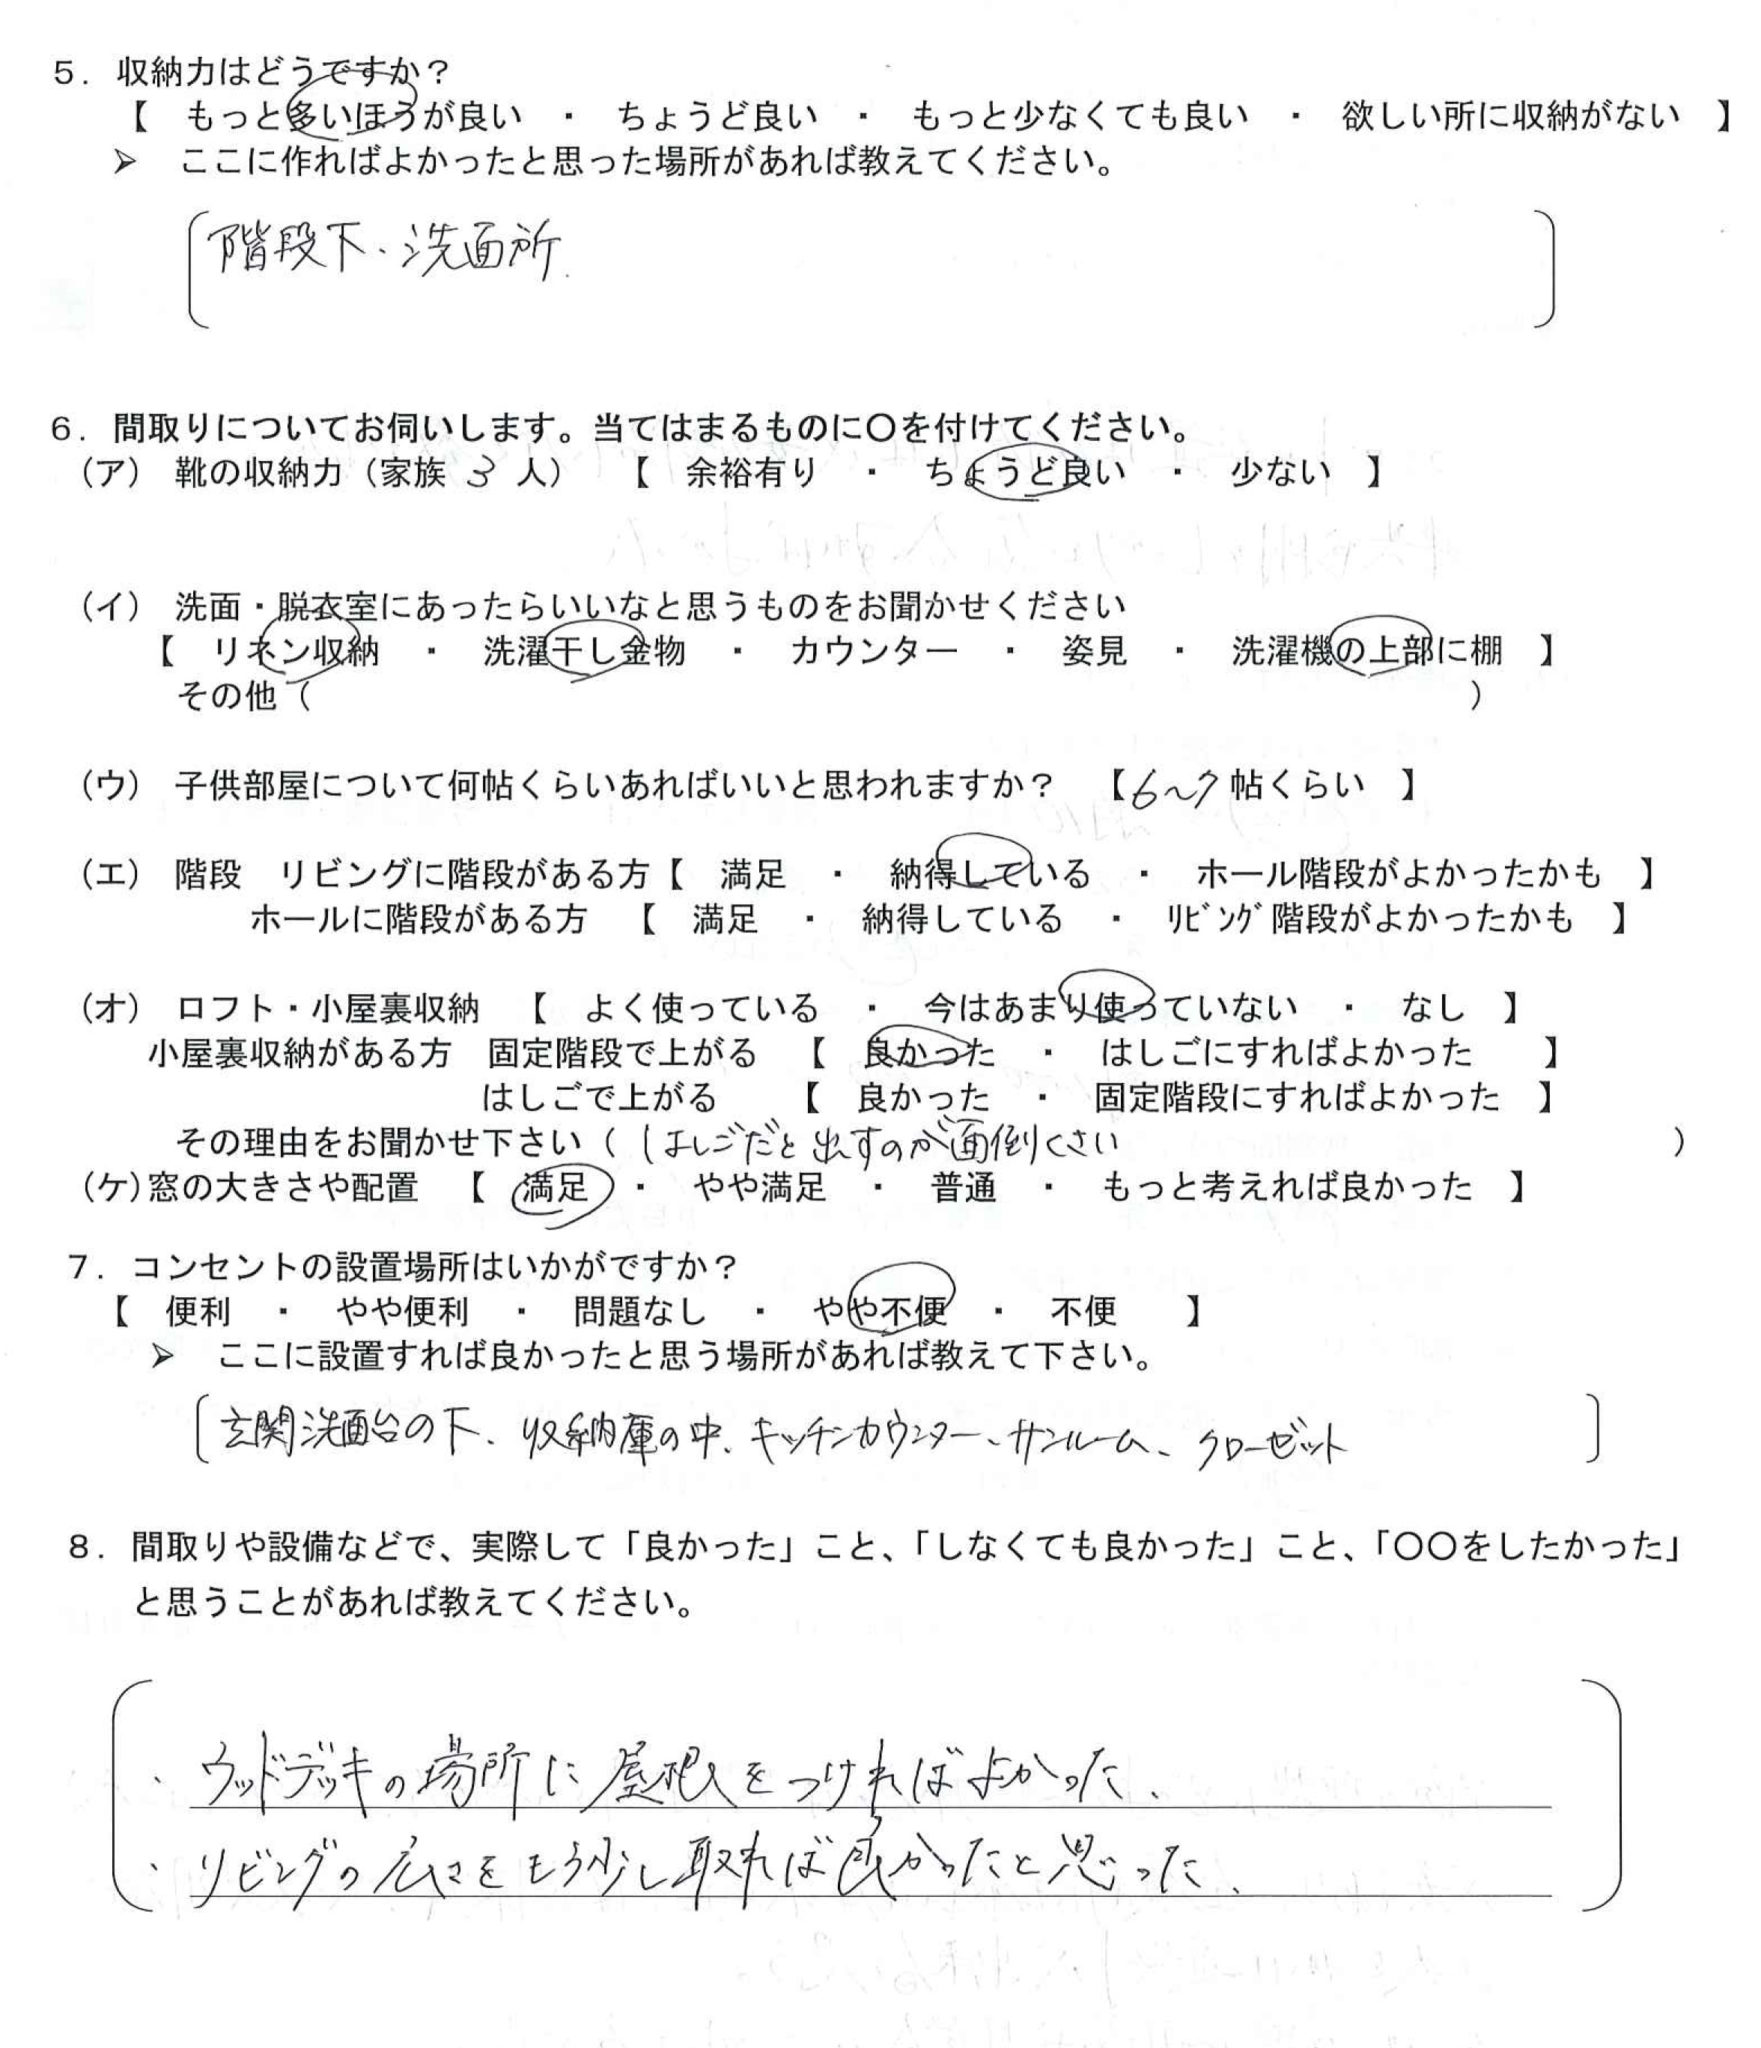 ５．収納力はどうですか？
【　もっと多いほうが良い　・　ちょうど良い　・　もっと少なくても良い　・　欲しい所に収納がない　】
➢　ここに作ればよかったと思った場所があれば教えてください。
階段下、洗面所.
６．間取りについてお伺いします。当てはまるものに〇を付けてください。
（ア）　靴の収納力（家族 3 人）　【　余裕有り　・　ちょうど良い　・　少ない　】
（イ）　洗面・脱衣室にあったらいいなと思うものをお聞かせください
【　リネン収納　・　洗濯干し金物　・　カウンター　・　姿見　・　洗濯機の上部に棚　】
その他（　　　　）
（ウ）　子供部屋について何帖くらいあればいいと思われますか？　【6～7 帖くらい　】
（エ）　階段　リビングに階段がある方【　満足　・　納得している　・　ホール階段がよかったかも　】
ホールに階段がある方　【　満足　・　納得している　・　ﾘﾋﾞﾝｸﾞ階段がよかったかも　】
（オ）　ロフト・小屋裏収納　【　よく使っている　・　今はあまり使っていない　・　なし　】
小屋裏収納がある方　固定階段で上がる　【　良かった　・　はしごにすればよかった　】
はしごで上がる　【　良かった　・　固定階段にすればよかった　】
その理由をお聞かせ下さい（ はしごだと出すのが面倒くさい　）
（ケ）窓の大きさや配置　【　満足　・　やや満足　・　普通　・　もっと考えれば良かった　】
７．コンセントの設置場所はいかがですか？
【　便利　・　やや便利　・　問題なし　・　やや不便　・　不便　】
➢　ここに設置すれば良かったと思う場所があれば教えて下さい。
玄関洗面台の下、収納庫の中、キッチンカウンター、サンルーム、クローゼット
８．間取りや設備などで、実際して「良かった」こと、「しなくても良かった」こと、「〇〇をしたかった」
と思うことがあれば教えてください。
・ウッドデッキの場所に屋根をつければよかった、
・リビングの広さをもう少し取れば良かったと思った、